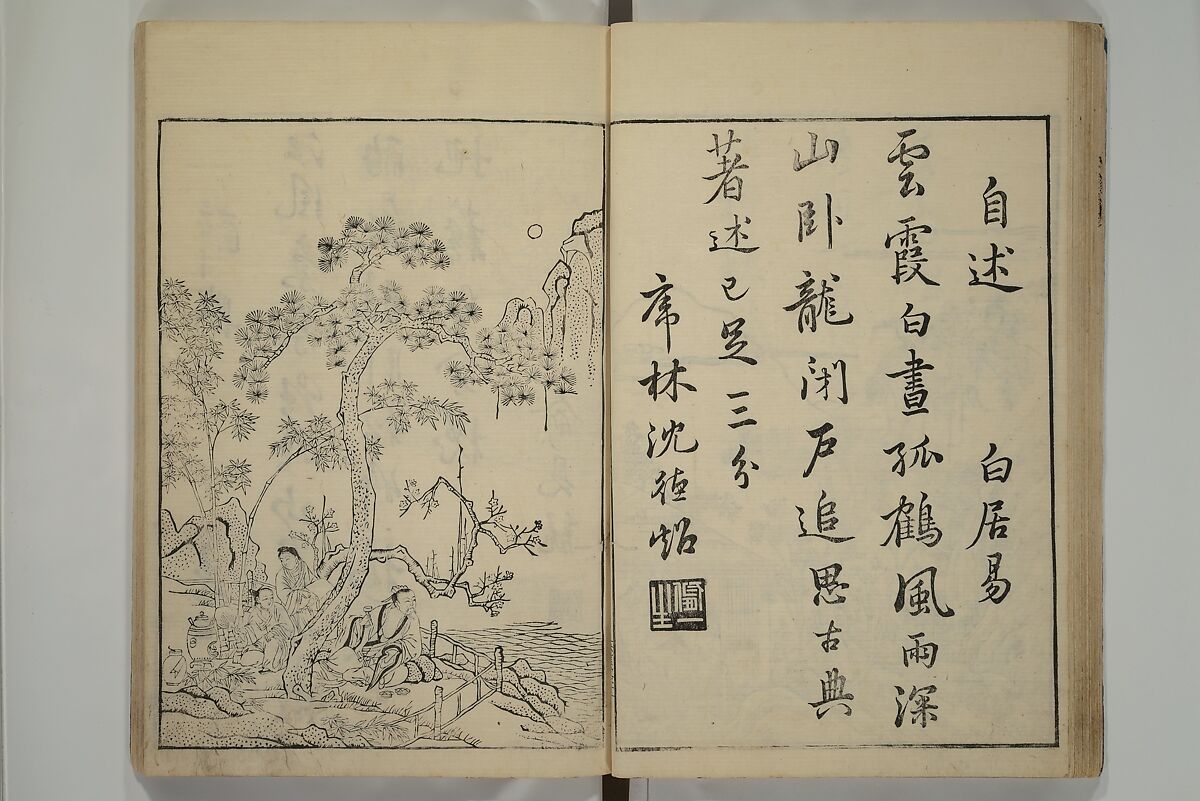 自述　白居易
雲霞白晝孤鶴風雨深
山卧龍閉戶追思古典
著述已足三分
虎林沈德